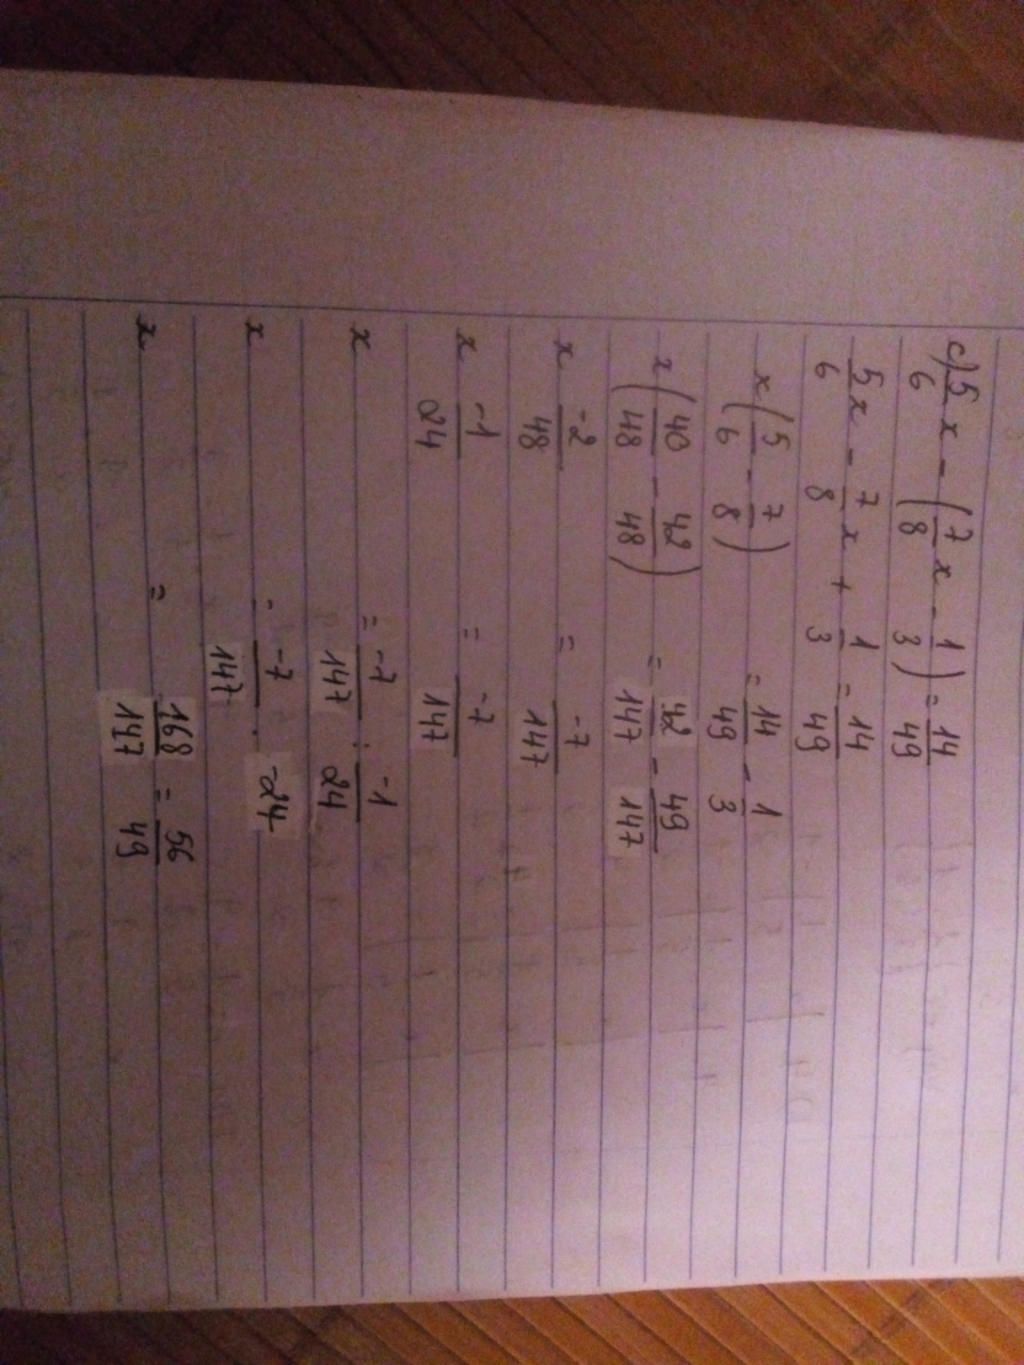 c) 5/6 x - (7/8 x - 1/3) = 14/49
5/6 x - 7/8 x + 1/3 = 14/49
x (5/6 - 7/8) = 14/49 - 1/3
x (40/48 - 42/48) = 42/147 - 49/147
x -2/48 = -7/147
x -1/24 = -7/147
x = -7/147 : -1/24
x = -7/147 . -24
x = 168/147 = 56/49